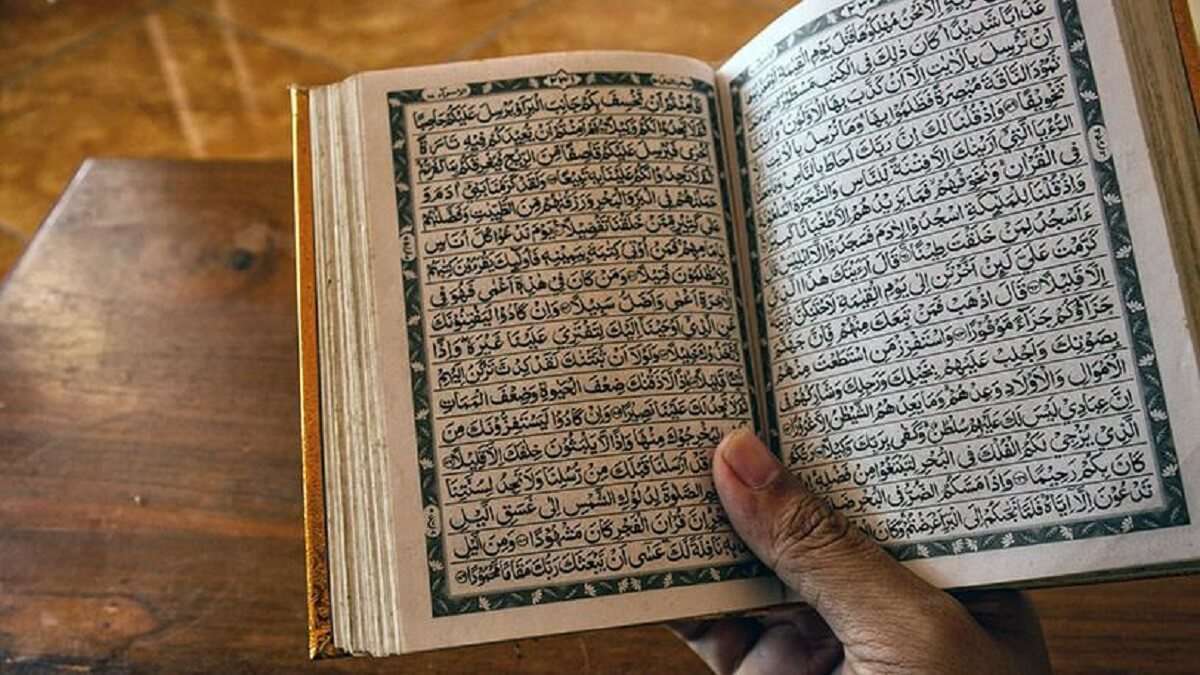 قَرْيَةٍ اِلَّا نَحْنُ مُهْلِكُوْهَا قَبْلَ يَوْمِ الْقِيٰمَةِ
عَذَابًا شَدِيْدًا كَانَ ذٰلِكَ فِى الْكِتٰبِ مَسْطُوْرًا
اَنْ نُّرْسِلَ بِالْاٰيٰتِ اِلَّآ اَنْ كَذَّبَ بِهَا الْاَوَّلُوْنَ وَاٰتَيْنَا
ثَمُوْدَ النَّاقَةَ مُبْصِرَةً فَظَلَمُوْا بِهَا وَمَا نُرْسِلُ بِالْاٰيٰتِ
تَخْوِيْفًا ۝٥٩ وَاِذْ قُلْنَا لَكَ اِنَّ رَبَّكَ اَحَاطَ بِالنَّاسِ وَمَا
الرُّءْيَا الَّتِيْٓ اَرَيْنٰكَ اِلَّا فِتْنَةً لِّلنَّاسِ وَالشَّجَرَةَ الْمَلْعُوْنَةَ
فِى الْقُرْاٰنِ وَنُخَوِّفُهُمْ فَمَا يَزِيْدُهُمْ اِلَّا طُغْيَانًا كَبِيْرًا
وَاِذْ قُلْنَا لِلْمَلٰٓئِكَةِ اسْجُدُوْا لِاٰدَمَ فَسَجَدُوْٓا اِلَّآ اِبْلِيْسَ
ءَاَسْجُدُ لِمَنْ خَلَقْتَ طِيْنًا ۝٦١ قَالَ اَرَءَيْتَكَ هٰذَا الَّذِيْ
كَرَّمْتَ عَلَيَّ لَئِنْ اَخَّرْتَنِ اِلٰى يَوْمِ الْقِيٰمَةِ لَاَحْتَنِكَنَّ
اِلَّا قَلِيْلًا ۝٦٢ قَالَ اذْهَبْ فَمَنْ تَبِعَكَ مِنْهُمْ فَاِنَّ جَهَنَّمَ
جَزَآؤُكُمْ جَزَآءً مَّوْفُوْرًا ۝٦٣ وَاسْتَفْزِزْ مَنِ اسْتَطَعْتَ مِنْهُمْ
بِصَوْتِكَ وَاَجْلِبْ عَلَيْهِمْ بِخَيْلِكَ وَرَجِلِكَ وَشَارِكْهُمْ فِى
الْاَمْوَالِ وَالْاَوْلَادِ وَعِدْهُمْ وَمَا يَعِدُهُمُ الشَّيْطٰنُ اِلَّا غُرُوْرًا ۝٦٤
اِنَّ عِبَادِيْ لَيْسَ لَكَ عَلَيْهِمْ سُلْطٰنٌ وَكَفٰى بِرَبِّكَ وَكِيْلًا ۝٦٥
الَّذِيْ يُزْجِيْ لَكُمُ الْفُلْكَ فِى الْبَحْرِ لِتَبْتَغُوْا مِنْ فَضْلِهٖ اِنَّهٗ
كَانَ بِكُمْ رَحِيْمًا ۝٦٦ وَاِذَا مَسَّكُمُ الضُّرُّ فِى الْبَحْرِ ضَلَّ
تَدْعُوْنَ اِلَّآ اِيَّاهُ فَلَمَّا نَجّٰىكُمْ اِلَى الْبَرِّ اَعْرَضْتُمْ وَكَانَ
اَفَاَمِنْتُمْ اَنْ يَّخْسِفَ بِكُمْ جَانِبَ الْبَرِّ اَوْ يُرْسِلَ عَلَيْكُمْ حَاصِبًا
ثُمَّ لَا تَجِدُوْا لَكُمْ وَكِيْلًا ۝٦٨ اَمْ اَمِنْتُمْ اَنْ يُّعِيْدَكُمْ فِيْهِ تَارَةً
اُخْرٰى فَيُرْسِلَ عَلَيْكُمْ قَاصِفًا مِّنَ الرِّيْحِ فَيُغْرِقَكُمْ بِمَا كَفَرْتُمْ
ثُمَّ لَا تَجِدُوْا لَكُمْ عَلَيْنَا بِهٖ تَبِيْعًا ۝٦٩ وَلَقَدْ كَرَّمْنَا بَنِيْٓ اٰدَمَ وَ
حَمَلْنٰهُمْ فِى الْبَرِّ وَالْبَحْرِ وَرَزَقْنٰهُمْ مِّنَ الطَّيِّبٰتِ وَفَضَّلْنٰهُمْ
عَلٰى كَثِيْرٍ مِّمَّنْ خَلَقْنَا تَفْضِيْلًا ۝٧٠ يَوْمَ نَدْعُوْا كُلَّ اُنَاسٍ
بِاِمَامِهِمْ فَمَنْ اُوْتِيَ كِتٰبَهٗ بِيَمِيْنِهٖ فَاُولٰٓئِكَ يَقْرَءُوْنَ كِتٰبَهُمْ
وَلَا يُظْلَمُوْنَ فَتِيْلًا ۝٧١ وَمَنْ كَانَ فِيْ هٰذِهٖٓ اَعْمٰى فَهُوَ فِى
الْاٰخِرَةِ اَعْمٰى وَاَضَلُّ سَبِيْلًا ۝٧٢ وَاِنْ كَادُوْا لَيَفْتِنُوْنَكَ
عَنِ الَّذِيْٓ اَوْحَيْنَآ اِلَيْكَ لِتَفْتَرِيَ عَلَيْنَا غَيْرَهٗ وَاِذًا
لَّاتَّخَذُوْكَ خَلِيْلًا ۝٧٣ وَلَوْلَآ اَنْ ثَبَّتْنٰكَ لَقَدْ كِدْتَّ تَرْكَنُ اِلَيْهِمْ
شَيْئًا قَلِيْلًا ۝٧٤ اِذًا لَّاَذَقْنٰكَ ضِعْفَ الْحَيٰوةِ وَضِعْفَ الْمَمَاتِ
ثُمَّ لَا تَجِدُ لَكَ عَلَيْنَا نَصِيْرًا ۝٧٥ وَاِنْ كَادُوْا لَيَسْتَفِزُّوْنَكَ مِنَ
لِيُخْرِجُوْكَ مِنْهَا وَاِذًا لَّا يَلْبَثُوْنَ خِلٰفَكَ اِلَّا قَلِيْلًا ۝٧٦
قَدْ اَرْسَلْنَا قَبْلَكَ مِنْ رُّسُلِنَا وَلَا تَجِدُ لِسُنَّتِنَا
الصَّلٰوةَ لِدُلُوْكِ الشَّمْسِ اِلٰى غَسَقِ الَّيْلِ
قُرْاٰنَ الْفَجْرِ كَانَ مَشْهُوْدًا ۝٧٨ وَمِنَ الَّيْلِ
بِهٖ نَافِلَةً لَّكَ عَسٰٓى اَنْ يَّبْعَثَكَ رَبُّكَ مَقَامًا مَّحْمُوْدًا ۝٧٩